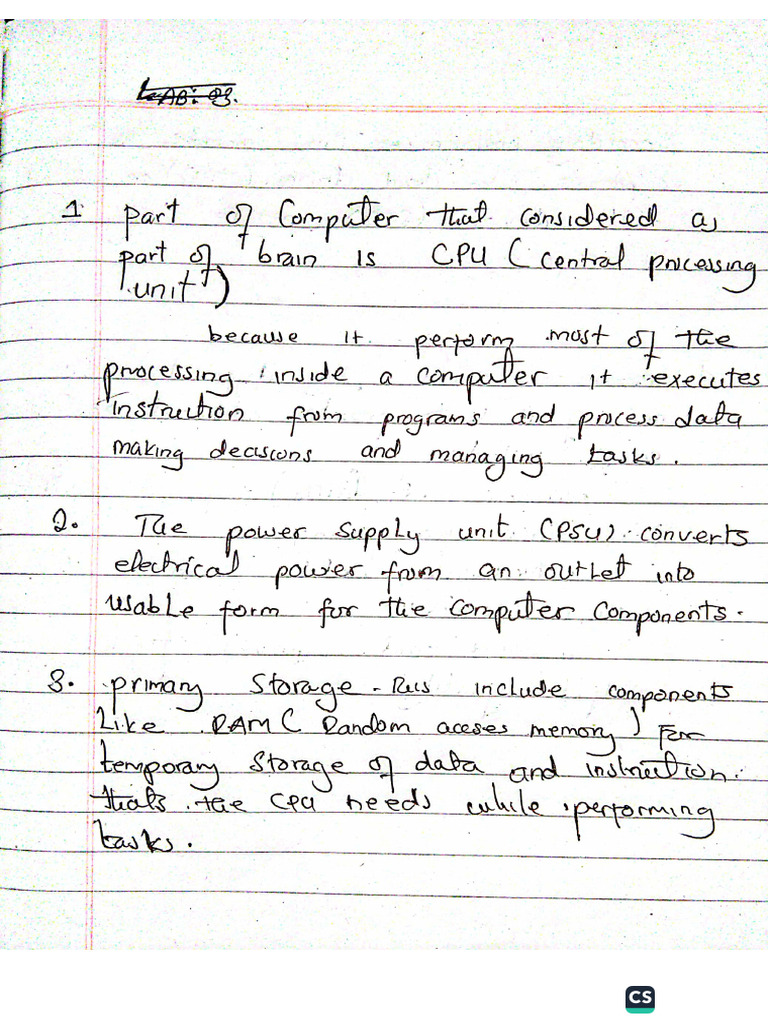 LAB: 03.
1. part of Computer that considered as
part of brain is CPU ( central processing
unit )
because it perform most of the
processing inside a computer it executes
instruction from programs and process data
making decisions and managing tasks.
2. The power supply unit (PSU) converts
electrical power from an outlet into
usable form for the computer components.
3. primary Storage - include components
Like RAM ( Random acceses memory ) For
temporary Storage of data and instruction
thats the CPU needs while performing
tasks.
CS